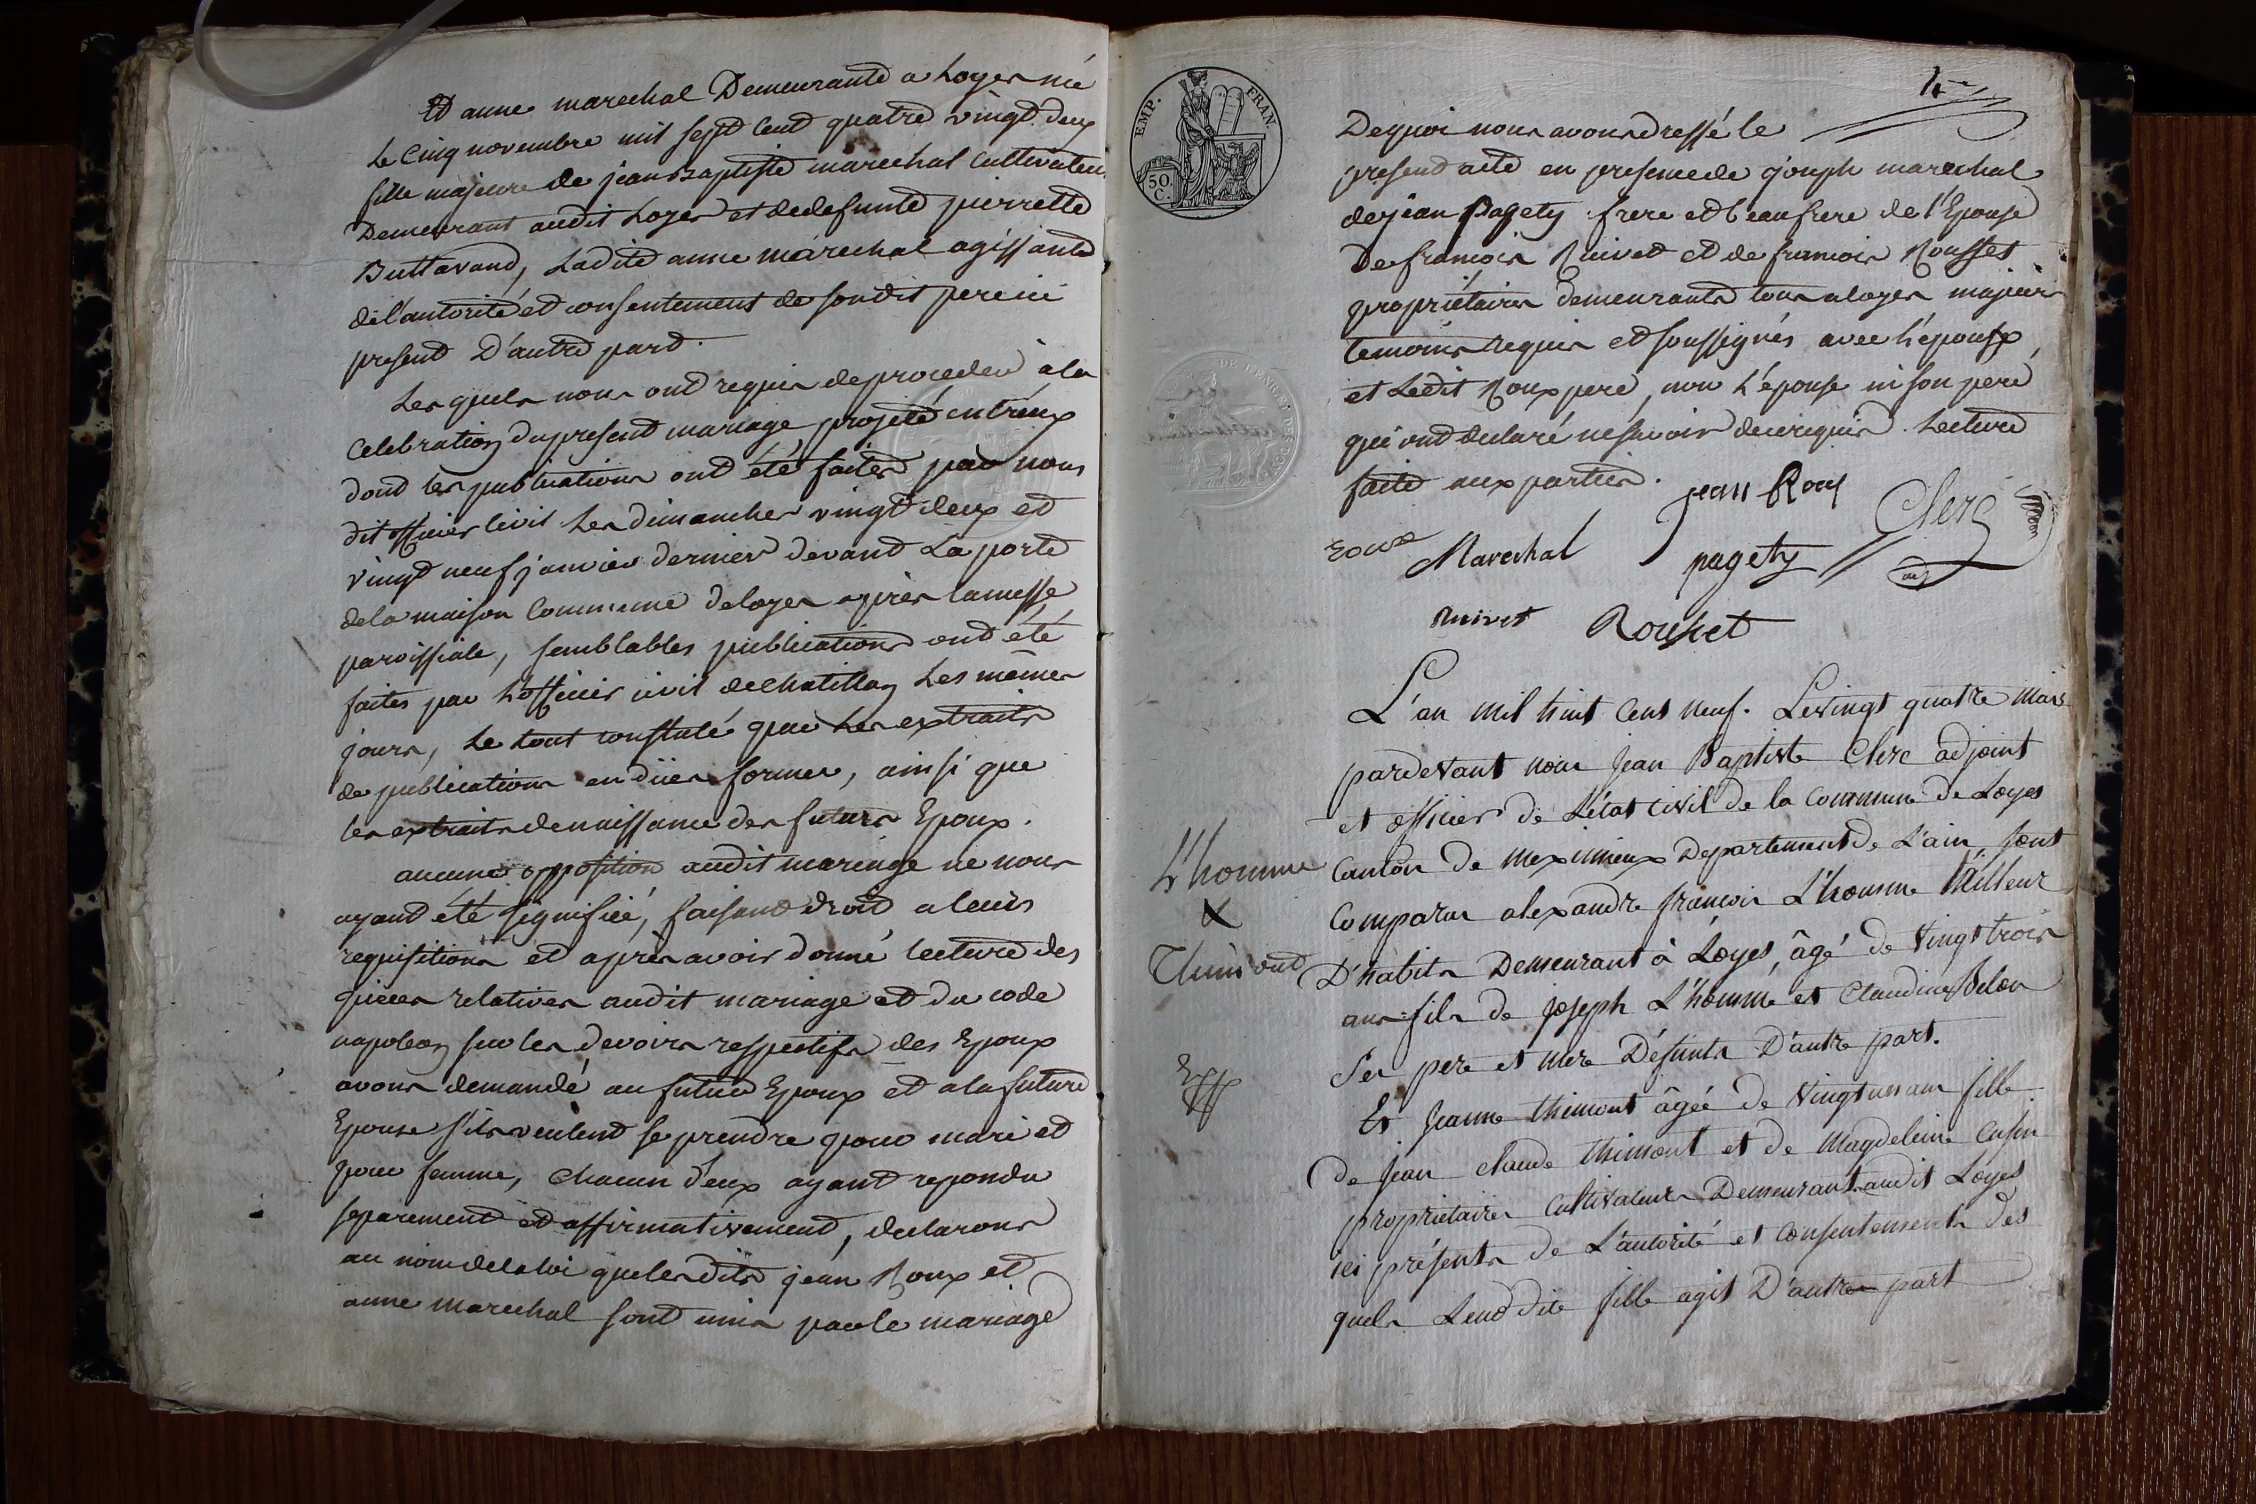 Et anne marechal Demeurante a Loyes née
Le Cinq novembre mil sept Cent quatre vingt deux
fille majeure de jean Baptiste marechal Cultivateur
Demeurant audit Loyes et de defunte pierrette
Buttavand, Ladite anne maréchal agissante
de l'autorité et consentement de son dit pere ici
present D'autre part.
Les quels nous ont requis de proceder à la
Celebration du present mariage projeté entreux
dont les publications ont été faites par nous
dit officier Civil Les dimanches vingt deux et
vingt neuf janvier dernier devant La porte
de la maison Commune de loyes après la messe
paroissiale, semblables publications ont été
faites par L'officier civil de chatillon Les mêmes
jours, Le tout constaté par Les extraits
de publications en dües formes, ainsi que
les extraits de naissance des futurs Epoux.
aucune opposition audit mariage ne nous
ayant été signifiée, faisant droit a leurs
requisitions et après avoir donné lecture des
pieces relatives audit mariage et du code
napoleon sur les devoirs respectifs des Epoux
avons demandé au futur Epoux et a la future
Epouse s'ils veulent se prendre pour mari et
pour femme, chacun d'eux ayant repondu
separement et affirmativement, declarons
au nom de la loi que lesdits jean Roux et
anne marechal sont unis par le mariage
De quoi nous avons dressé le
present acte en presence de joseph marechal
de jean Pagety frere et beaufrere de l'Epouse
De francois Ruivet et de francois Rousset
propriétaires demeurants tous a loyes majeurs
temoins requis et soussignés avec l'époux,
et Ledit Roux pere, non L'épouse ni son pere
qui ont declaré ne savoir de ce requis. Lecture
faite aux parties.
jean Roux
Clerc
roux
Marechal
pagety
adj
Ruivet
Rousset
EMP. FRAN.
50. C.
L'an mil huit Cent neuf. Le vingt quatre mars
pardevant nous Jean Baptiste Clerc adjoint
et officier de L'état Civil de la Commune de Loyes
Canton de meximieux Departement de L'ain, sont
L'homme
&
Thimont
Comparus alexandre francois L'homme Tailleur
D'habits Demeurant à Loyes, âgé de vingt trois
ans fils de Joseph L'homme et Claudine Belon
Ses pere et mere Défunts D'autre part.
Et Jeanne thimont âgée de vingt un ans fille
de Jean claude thimont et de Magdeleine Cusin
propriétaires Cultivateurs Demeurant audit Loyes
ici présents de L'autorité et Consentements des
quels Leur dite fille agit D'autre part